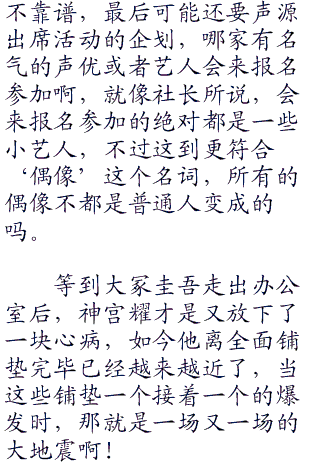 不靠谱，最后可能还要声源
出席活动的企划，哪家有名
气的声优或者艺人会来报名
参加啊，就像社长所说，会
来报名参加的绝对都是一些
小艺人，不过这到更符合
‘偶像’这个名词，所有的
偶像不都是普通人变成的
吗。
等到大冢圭吾走出办公
室后，神宫耀才是又放下了
一块心病，如今他离全面铺
垫完毕已经越来越近了，当
这些铺垫一个接着一个的爆
发时，那就是一场又一场的
大地震啊！